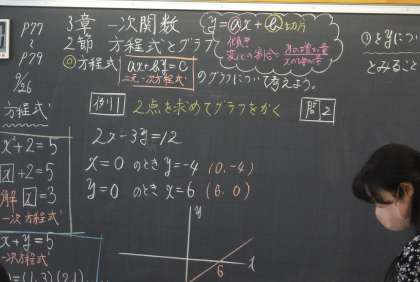 P77
〜
P79
9/26
方程式
x+2=5
x+2=5
解 x=3
一次方程式
x+y=5
次方程式
3章 一次関数
2節 方程式とグラフ
y=ax+b 切片
傾き
変化の割合
◎方程式 ax+by=0 のグラフについて考えよう。
二元一次方程式
例1 2点を求めてグラフをかく
問2
2x-3y=12
x=0 のとき y=-4 (0,-4)
y=0 のとき x=6 (6,0)
y
6
x
①をyについ
とみること